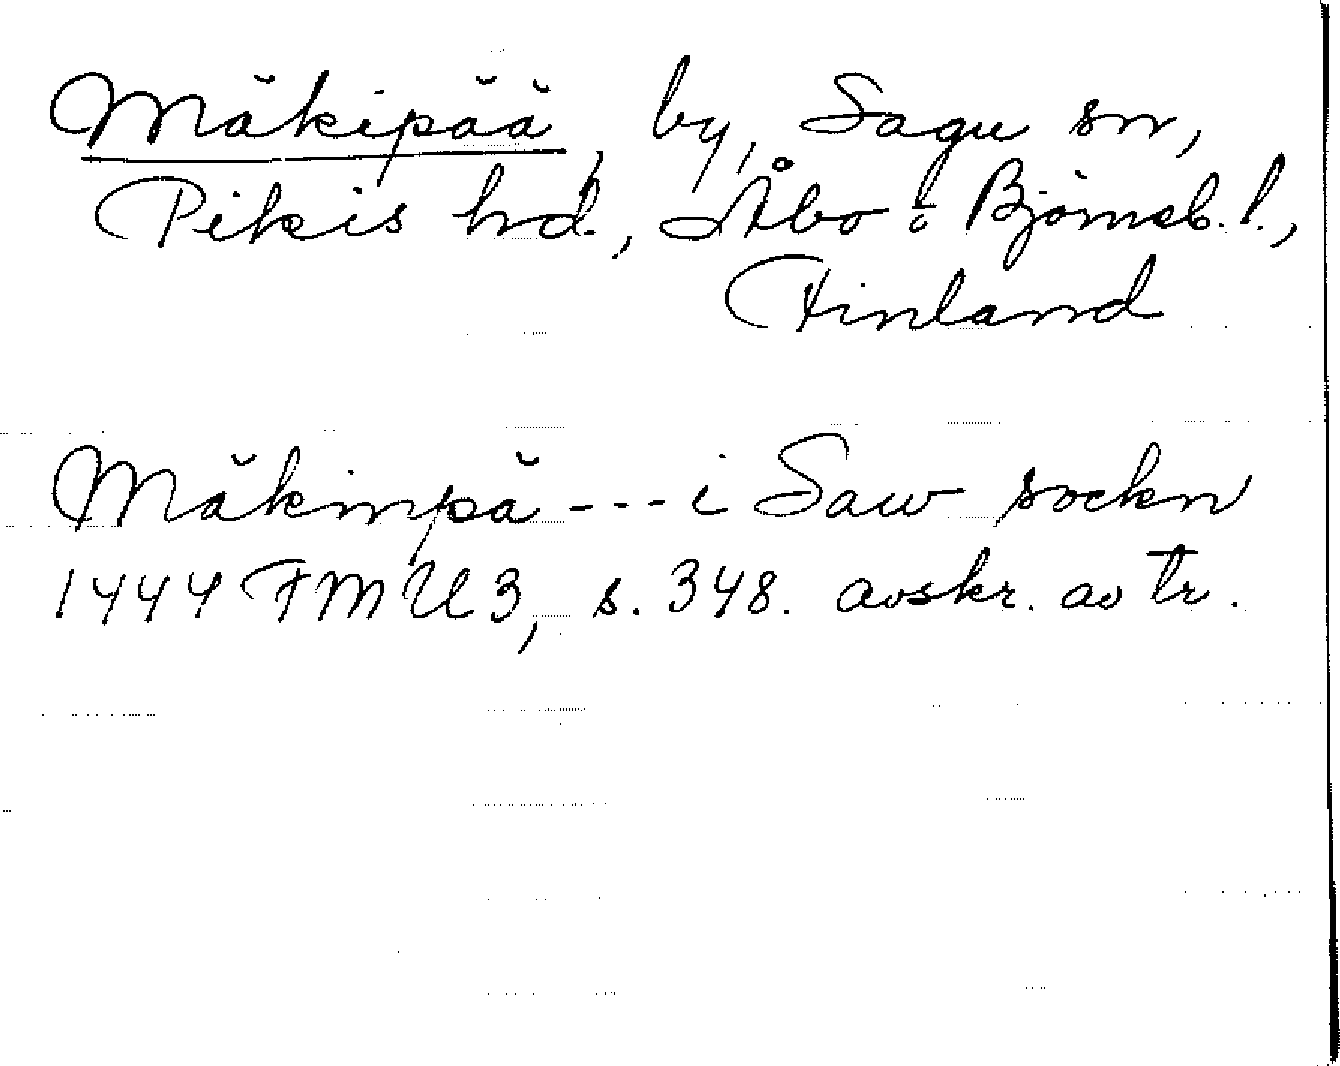 Mäkipää, by, Sagu sn,
Pikis hd., Åbo o Björneb. l.,
Finland
Mäkinpä --- i Saw sockn
1444 FMU 3, s. 348. avskr. av tr.